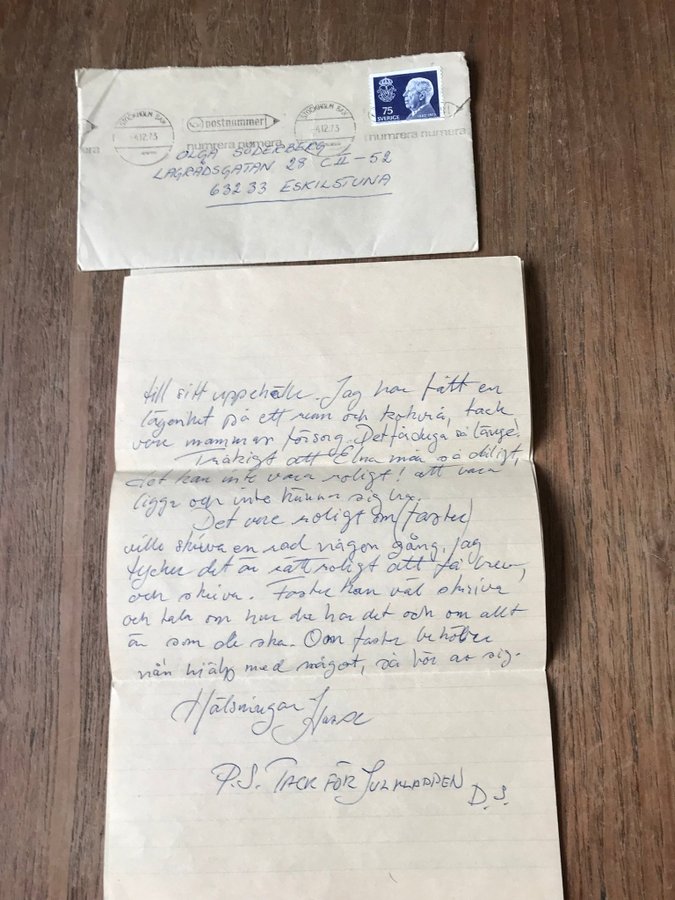 STOCKHOLM BAN
-4.12.73
postnummer
numrera numera
STOCKHOLM BAN
-4.12.73
numrera numera
75
SVERIGE
1882 1973
OLGA SÖDERBERG
LAGRADSGATAN 28 CII-52
63233 ESKILSTUNA
till sitt uppehälle. Jag har fått en
lägenhet på ett rum och kokvrå, tack
vare mammas försorg. Det får duga så länge.
Tråkigt att Elna mår så dåligt,
det kan inte vara roligt! att vara
ligga och inte känna sig bra.
Det vore roligt om (faster)
ville skriva en rad någon gång, jag
tycker det är rätt roligt att få brev,
och skriva. Faster kan väl skriva
och tala om hur du har det och om allt
är som de ska. Om faster behöver
nån hjälp med något, så hör av sig.
Hälsningar Hasse
P.S. TACK FÖR JULKLAPPEN
D.S.